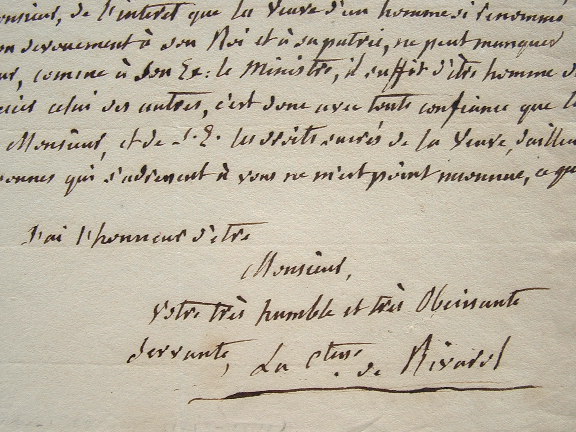 Monsieur, de l'interet que la Veuve d'un homme si renommé
son devouement à son Roi et à sa patrie, ne peut manquer
comme à Son Ex: le Ministre, il suffit d'être homme
celui des autres, c'est donc avec toute confiance que
Monsieur, et de S. E. les droits sacrés de la Veuve, d'ailleu
sonnes qui s'adressent à vous ne m'est point inconnue, ce qu
J'ai l'honneur d'être
Monsieur,
Votre très humble et très Obeissante
Servante, La Ctesse de Rivarol